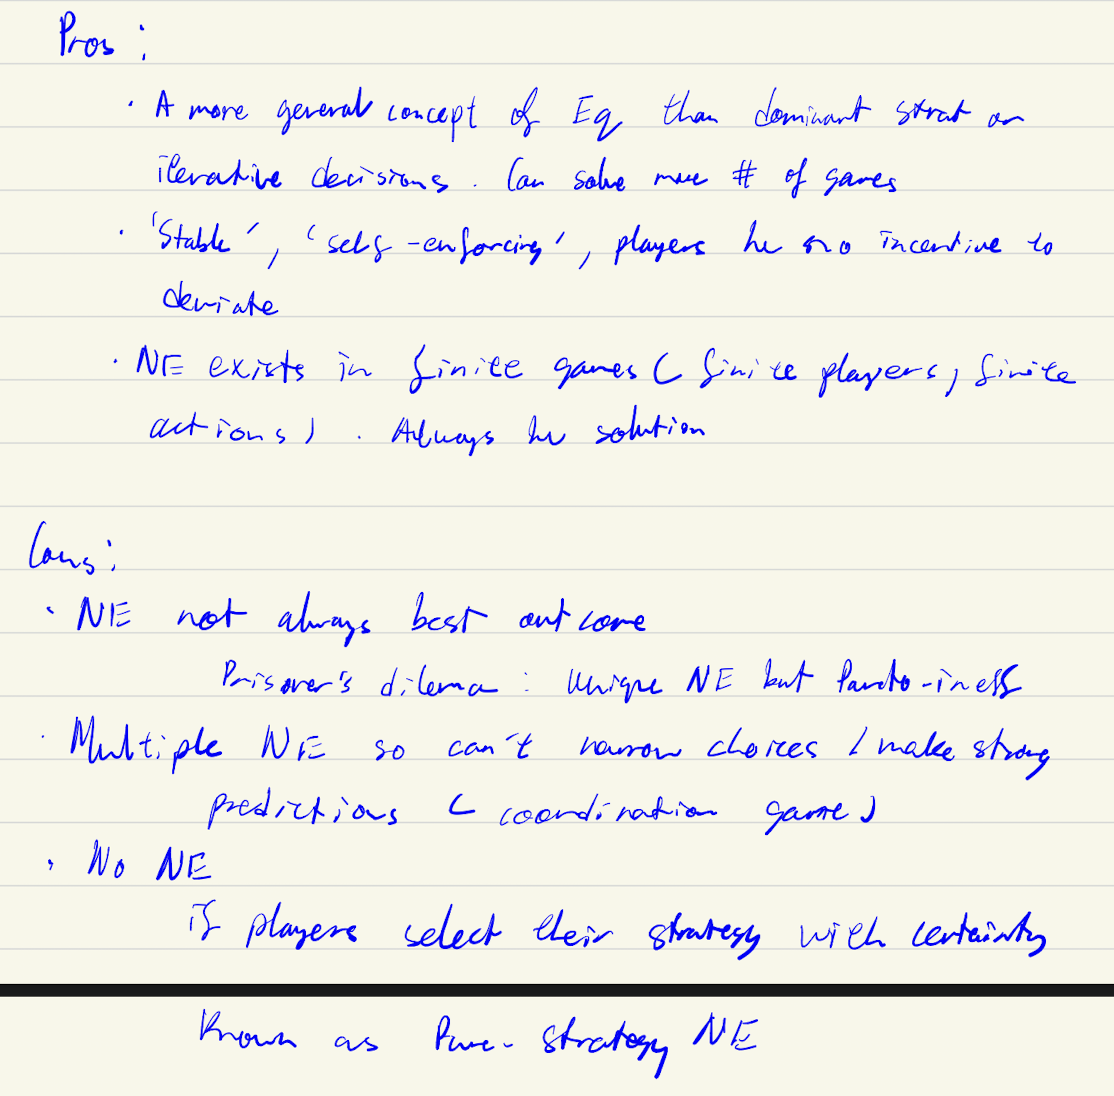 Pros :
· A more general concept of Eq than dominant strat or
iterative decisions. Can solve more # of games
· 'Stable', 'self-enforcing', players hv no incentive to
deviate
· NE exists in finite games ( finite players, finite
actions ) . Always hv solution
Cons :
· NE not always best outcome
Prisoner's dilema : Unique NE but Pareto-ineff
· Multiple NE so can't narrow choices / make strong
predictions ( coordination game )
· No NE
if players select their strategy with certainty
Known as Pure-strategy NE